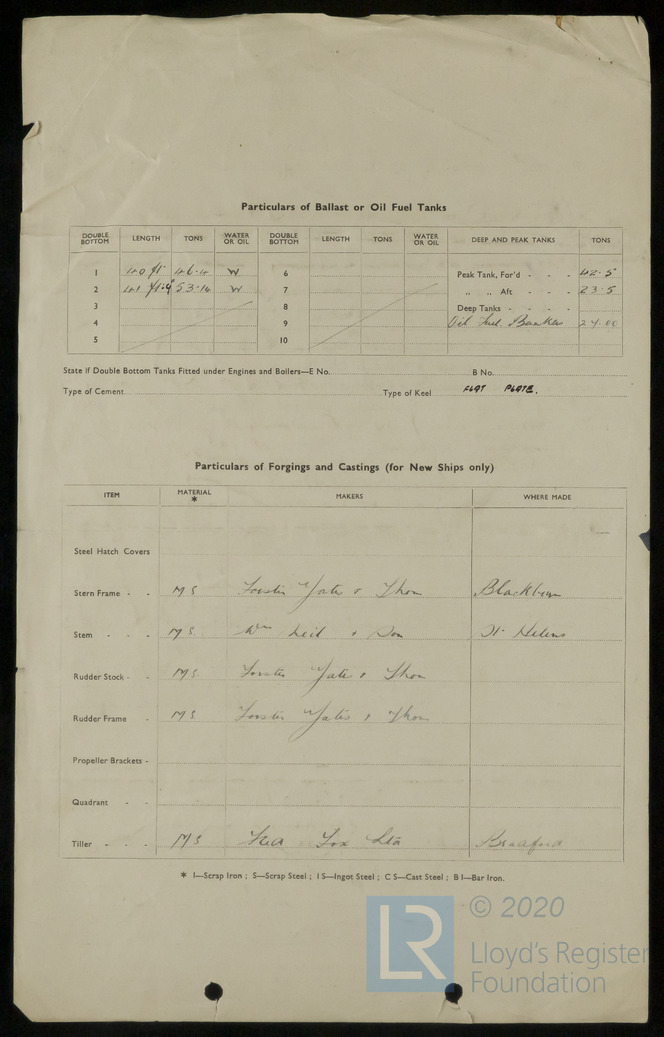 Particulars of Ballast or Oil Fuel Tanks
DOUBLE BOTTOM LENGTH TONS WATER OR OIL DOUBLE BOTTOM LENGTH TONS WATER OR OIL DEEP AND PEAK TANKS TONS
1 40 ft 46.4 W 6 Peak Tank, For'd - - - 42.5
2 41 53.14 W 7 „ „ Aft - - - 23.5
3 8 Deep Tanks - - - -
4 9 Oil Fuel Bunkers 24.00
5 10
State if Double Bottom Tanks Fitted under Engines and Boilers—E No. B No.
Type of Cement Type of Keel FLAT PLATE.
Particulars of Forgings and Castings (for New Ships only)
ITEM MATERIAL * MAKERS WHERE MADE
Steel Hatch Covers
Stern Frame - - M S Foster Yates & Thom Blackburn
Stem - - - M S Wm Neil & Son St Helens
Rudder Stock - - M S Foster Yates & Thom
Rudder Frame - M S Foster Yates & Thom
Propeller Brackets -
Quadrant - -
Tiller - - - M S Fox Ltd Bradford
* I—Scrap Iron ; S—Scrap Steel ; I S—Ingot Steel ; C S—Cast Steel ; B I—Bar Iron.
LR © 2020
Lloyd's Register
Foundation